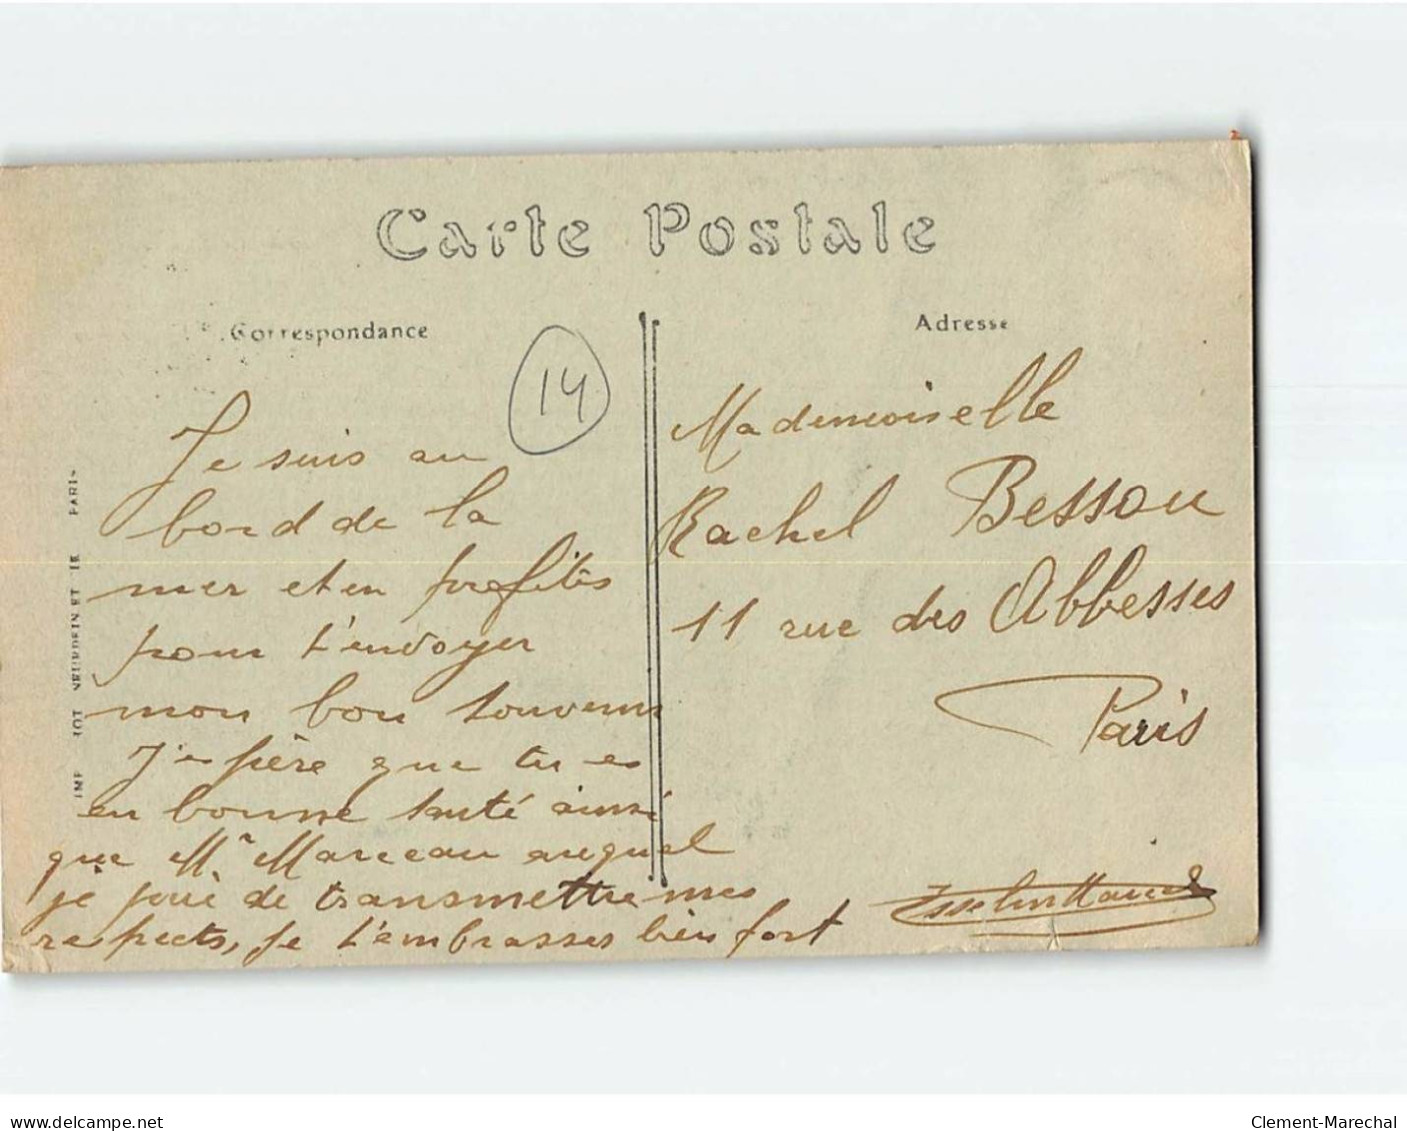 Carte Postale
Correspondance
Adresse
14
Je suis au
bord de la
mer et en profites
pour t'envoyer
mon bon souvenir
J'espère que tu es
en bonne santé ainsi
que Mr Marceau auquel
je te prie de transmettre mes
respects, je t'embrasses bien fort
Mademoiselle
Rachel Bessou
11 rue des Abbesses
Paris
NEURDEIN ET PARIS
delcampe.net
Clement-Marechal